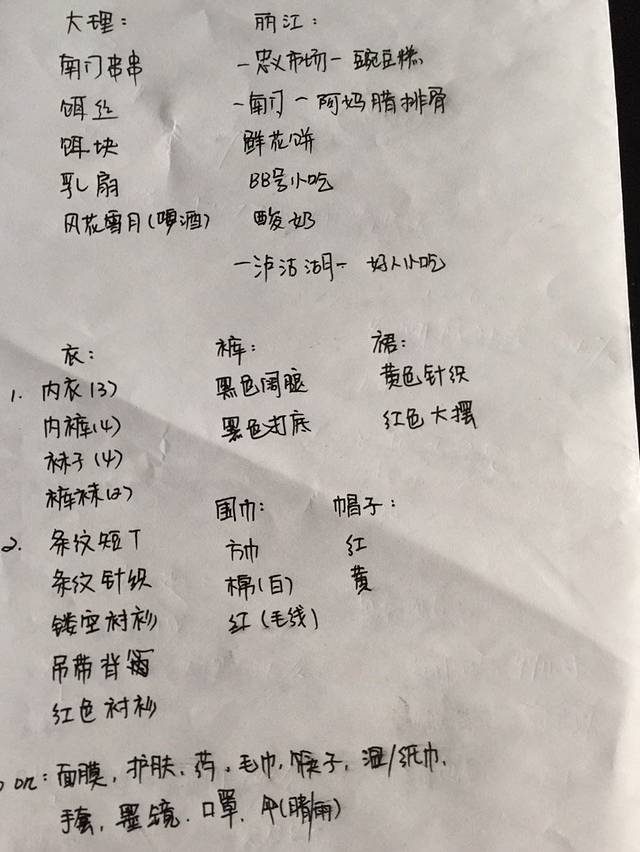 大理： 丽江：
南门串串 一忠义市场一豌豆糕
饵丝 一南门一阿妈腊排骨
饵块 鲜花饼
乳扇 BB号小吃
风花雪月(啤酒) 酸奶
一泸沽湖一 好人小吃
衣： 裤： 裙：
1. 内衣(3) 黑色阔腿 黄色针织
内裤(4) 黑色打底 红色大摆
袜子(4)
裤袜(2) 围巾： 帽子：
2. 条纹短T 方巾 红
条纹针织 棉(白) 黄
镂空衬衫 红(毛线)
吊带背
红色衬衫
on：面膜，护肤，药，毛巾，筷子，湿/纸巾，
手套，墨镜．口罩．伞(晴/雨)